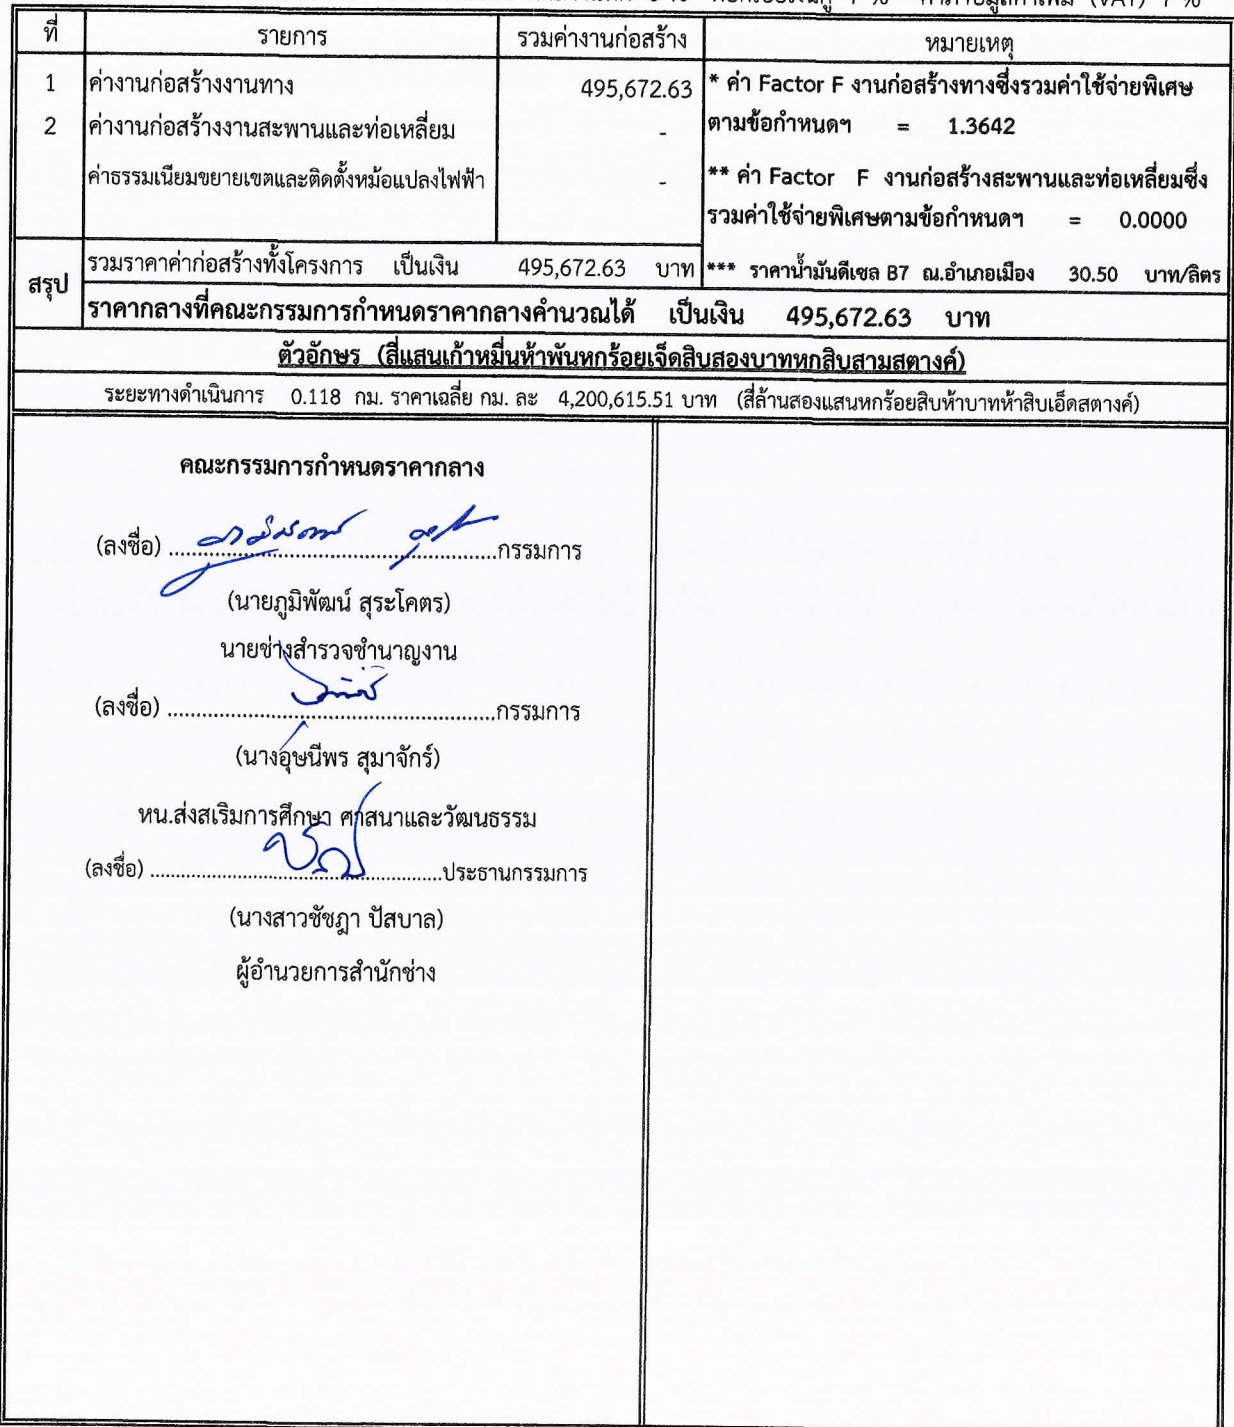 ดอกเบี้ยเงินกู้ 7 % ค่าภาษีมูลค่าเพิ่ม (VAT) 7 %
ที่ รายการ รวมค่างานก่อสร้าง หมายเหตุ
1 ค่างานก่อสร้างงานทาง 495,672.63 * ค่า Factor F งานก่อสร้างทางซึ่งรวมค่าใช้จ่ายพิเศษ
2 ค่างานก่อสร้างงานสะพานและท่อเหลี่ยม - ตามข้อกำหนดฯ = 1.3642
ค่าธรรมเนียมขยายเขตและติดตั้งหม้อแปลงไฟฟ้า - ** ค่า Factor F งานก่อสร้างสะพานและท่อเหลี่ยมซึ่ง
รวมค่าใช้จ่ายพิเศษตามข้อกำหนดฯ = 0.0000
สรุป รวมราคาค่าก่อสร้างทั้งโครงการ เป็นเงิน 495,672.63 บาท *** ราคาน้ำมันดีเซล B7 ณ.อำเภอเมือง 30.50 บาท/ลิตร
ราคากลางที่คณะกรรมการกำหนดราคากลางคำนวณได้ เป็นเงิน 495,672.63 บาท
ตัวอักษร (สี่แสนเก้าหมื่นห้าพันหกร้อยเจ็ดสิบสองบาทหกสิบสามสตางค์)
ระยะทางดำเนินการ 0.118 กม. ราคาเฉลี่ย กม. ละ 4,200,615.51 บาท (สี่ล้านสองแสนหกร้อยสิบห้าบาทห้าสิบเอ็ดสตางค์)
คณะกรรมการกำหนดราคากลาง
(ลงชื่อ) ........................................................กรรมการ
(นายภูมิพัฒน์ สุระโคตร)
นายช่างสำรวจชำนาญงาน
(ลงชื่อ) ........................................................กรรมการ
(นางอุษนีพร สุมาจักร์)
หน.ส่งสเริมการศึกษา ศาสนาและวัฒนธรรม
(ลงชื่อ) ..................................................ประธานกรรมการ
(นางสาวชัชฎา ปัสบาล)
ผู้อำนวยการสำนักช่าง